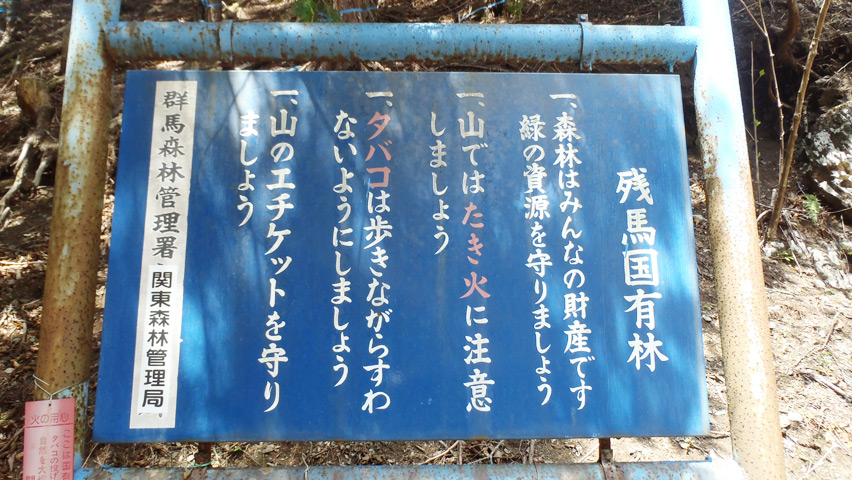 残馬国有林
一、森林はみんなの財産です
緑の資源を守りましょう
一、山ではたき火に注意
しましょう
一、タバコは歩きながらすわ
ないようにしましょう
一、山のエチケットを守り
ましょう
群馬森林管理署
関東森林管理局
火の用心